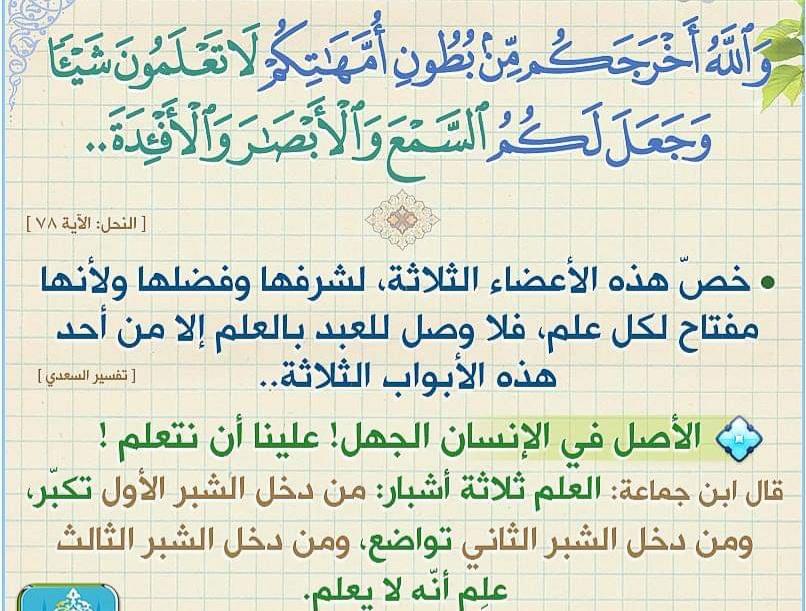 وَٱللَّهُ أَخْرَجَكُم مِّنۢ بُطُونِ أُمَّهَٰتِكُمْ لَا تَعْلَمُونَ شَيْـًٔا
وَجَعَلَ لَكُمُ ٱلسَّمْعَ وَٱلْأَبْصَٰرَ وَٱلْأَفْـِٔدَةَ..
[ النحل: الآية ٧٨ ]
• خصّ هذه الأعضاء الثلاثة، لشرفها وفضلها ولأنها
مفتاح لكل علم، فلا وصل للعبد بالعلم إلا من أحد
هذه الأبواب الثلاثة.. [ تفسير السعدي ]
الأصل في الإنسان الجهل! علينا أن نتعلم !
قال ابن جماعة: العلم ثلاثة أشبار: من دخل الشبر الأول تكبّر،
ومن دخل الشبر الثاني تواضع، ومن دخل الشبر الثالث
علِم أنّه لا يعلم.